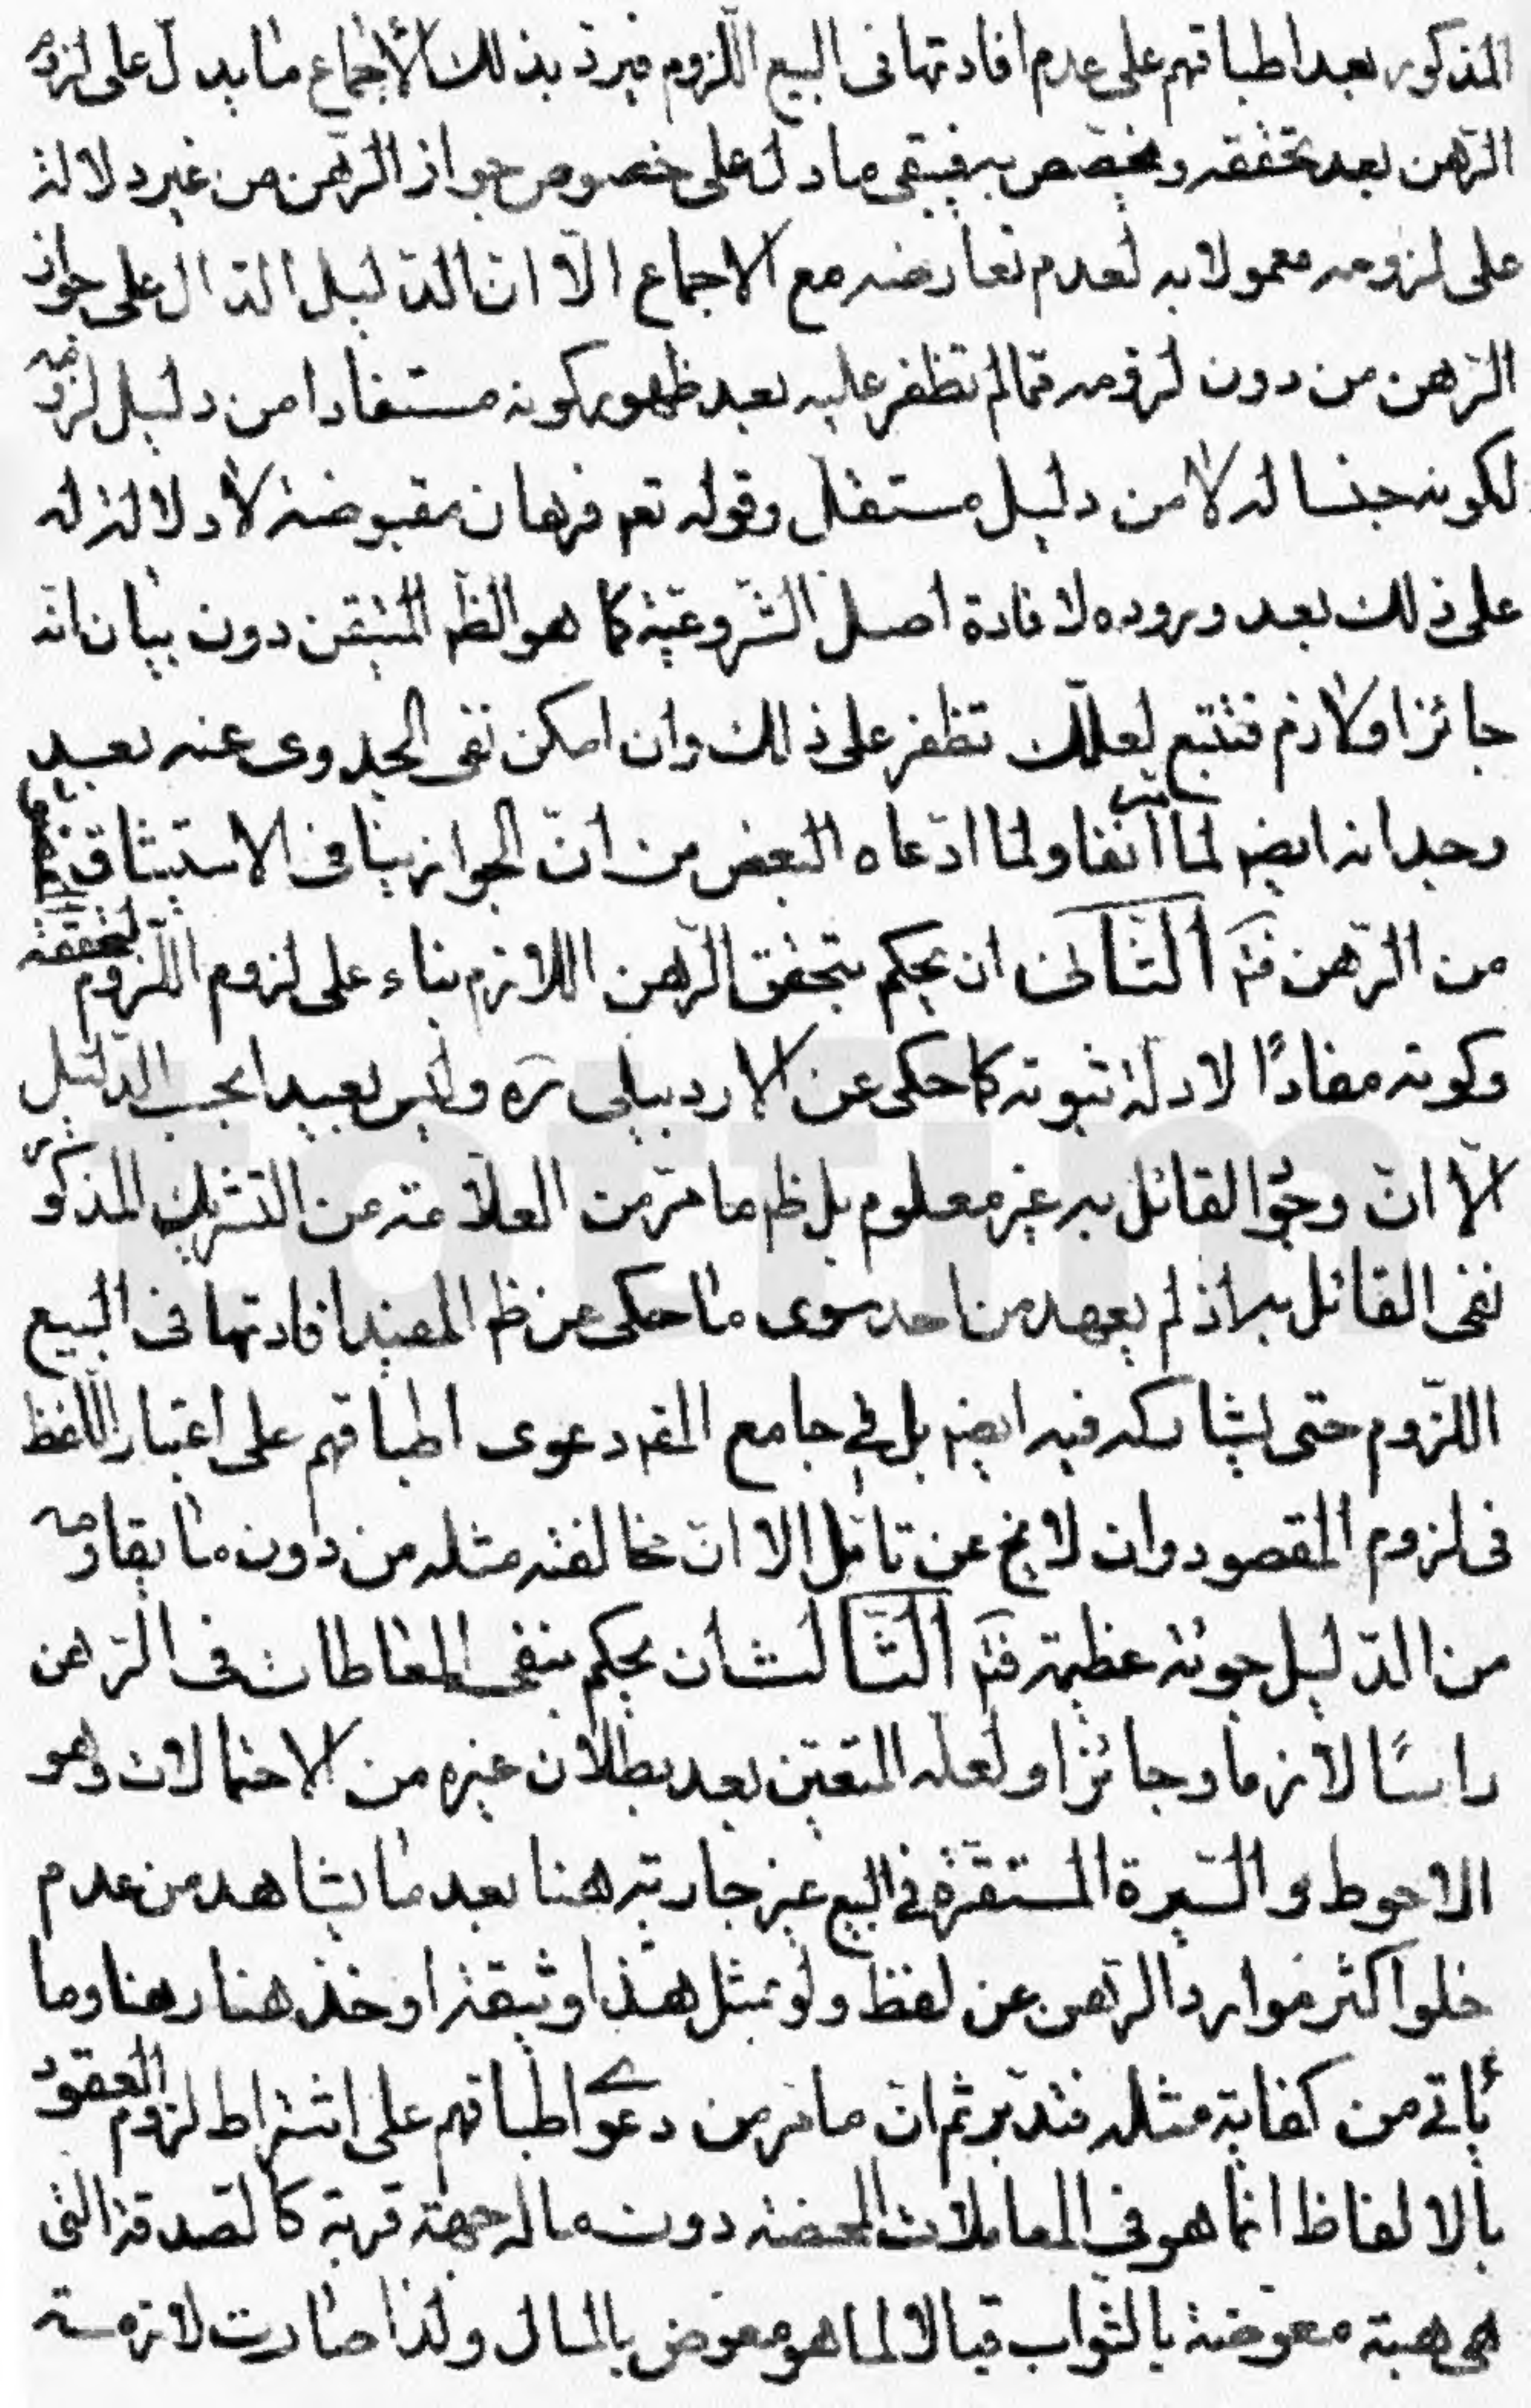 المذكور بعد اطباقهم على عدم افادتها فى البيع اللّزوم فيردّ بذلك الأجماع ما يدل على لزوم
الرّهن بعد تحققه ويخصّص به فيبقى ما دل على خصوص جواز الرّهن من غير دلالة
على لزومه معمولا به لعدم تعارضه مع الاجماع الّا انّ الدّليل الدّال على جواز
الرّهن من دون لزومه ممّا لم نظفر عليه بعد ظهور كونه مستفادا من دليل لزومه
لكونه جنسا له لا من دليل مستقل وقوله تعم فرهان مقبوضة لا دلالة له
على ذلك بعد وروده لافادة اصل الشّروعيّة كما هو الظّم المتيقن دون بيان انّه
جائز او لازم فتتبع لعلّك تظفر على ذلك وان امكن نفى الجدوى عنه بعد
وجدانه ايضم لما مرّ آنفا ولما ادّعاه البعض من انّ الجواز ينافى الاستيثاق المقصود
من الرّهن فتم الثّانى ان يحكم بتحقق الرّهن اللازم بناء على لزوم اللّزوم لتحققه
وكونه مفادًا لادلة ثبوته كما حكى عن الاردبيلى ره وليس بعيدا بحسب الدّليل
الّا انّ وجود القائل به غير معلوم بل ظم ما مرّ من العلّامة من التشريك المذكور
نفى القائل به اذ لم يعهد من احد سوى ما حكى عن ظم المفيد افادتها فى البيع
اللّزوم حتى يشاركه فيه ايضم بل فى جامع المقم دعوى اطباقهم على اعتبار اللّفظ
فى لزوم المقصود وان لا يخ عن تامّل الا انّ مخالفته مثله من دون ما يقاومه
من الدّليل جرئة عظيمة فتم الثّالث ان يحكم بنفى المعاطات فى الرّهن
راسًا لازما وجائزا ولعله المتعيّن بعد بطلان غيره من الاحتمالات وهو
الاحوط والسّيرة المستقرّة فى البيع غير جارية هنا بعد ما يشاهد من عدم
خلو اكثر موارد الرّهن عن لفظ ولو بمثل هذا وثيقة او خذ هنا رهنا وما
يأتى من كفاية مثله فتدبر ثم انّ ما مرّ من دعوى اطباقهم على اشتراط لزوم العقود
بالالفاظ انّما هو فى المعاملات المحضة دون ما له جهة قربة كالصّدقة الّتى
هى هبة معوّضة بالثّواب قبالا لما هو معوّض بالمال ولذا صارت لازمة